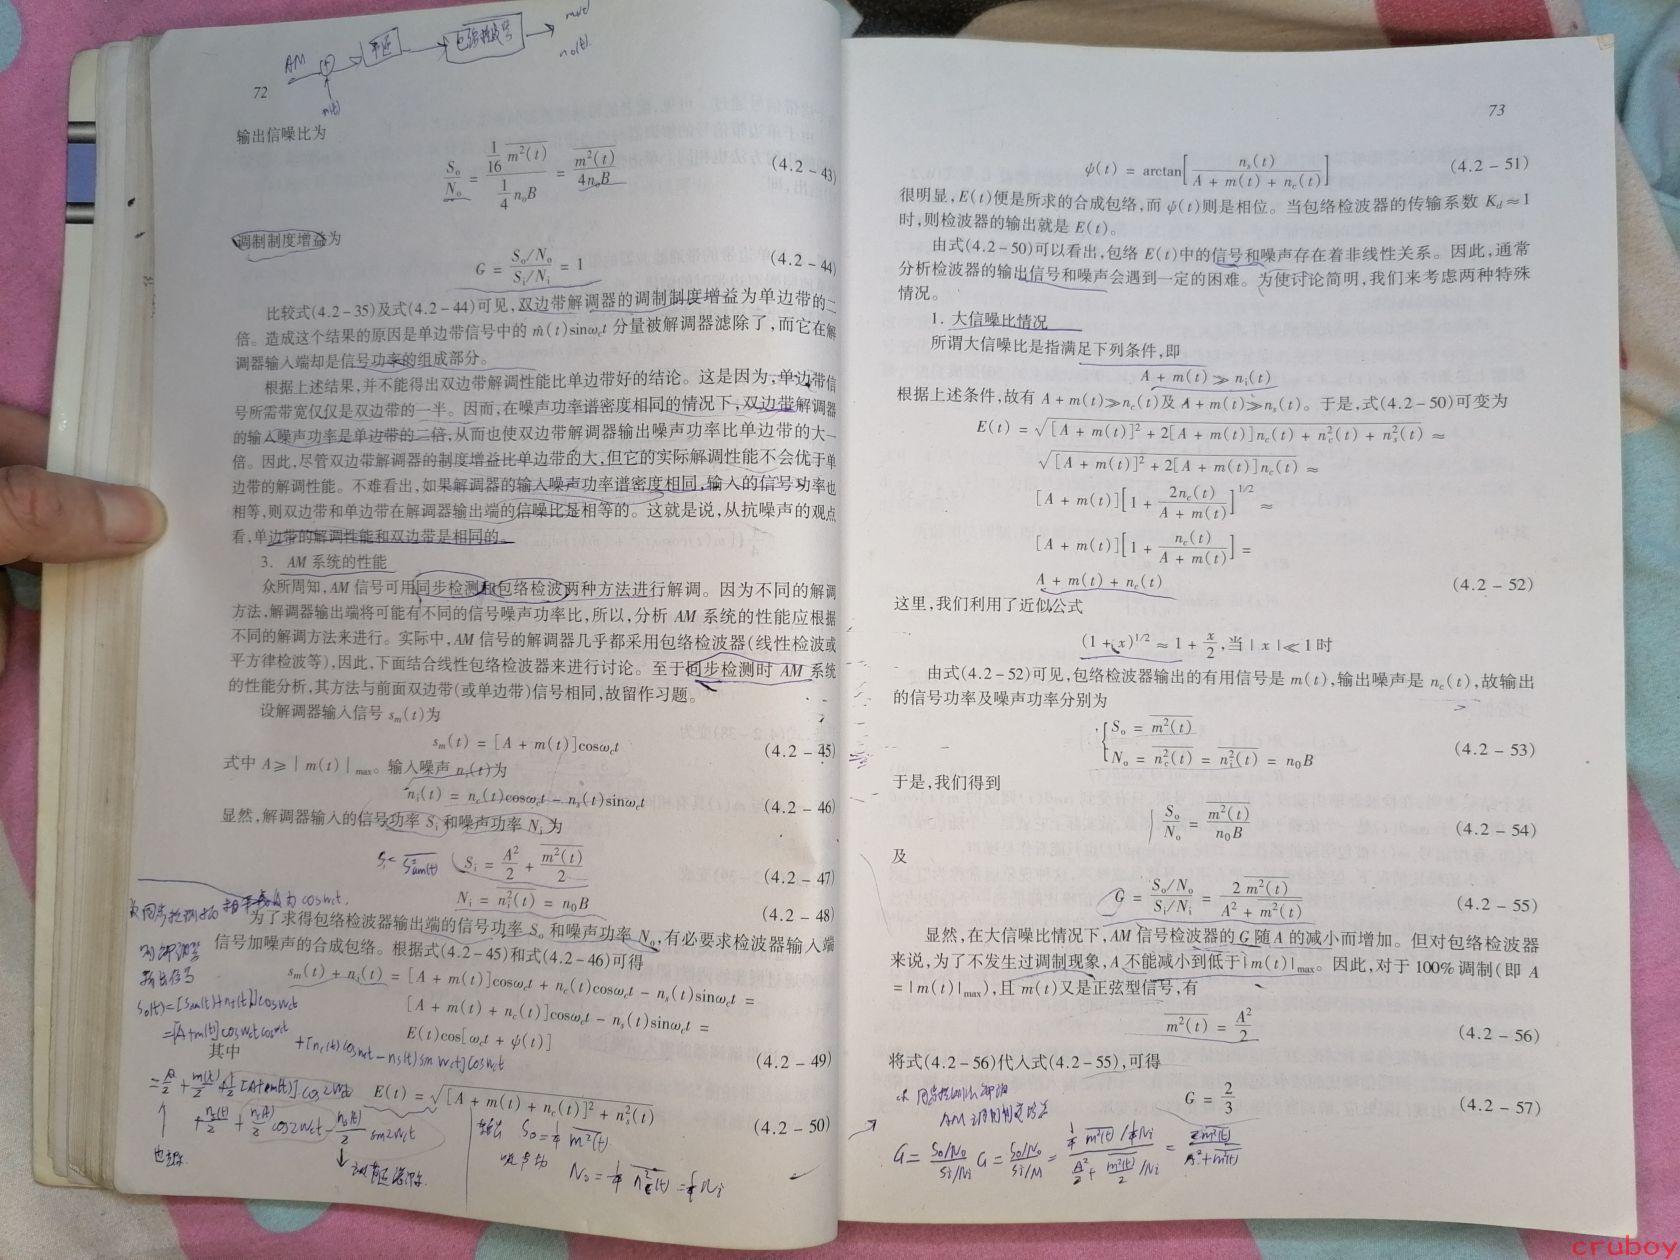 AM
n(t)
包络检波器
72
输出信噪比为
S₀/N₀ = (1/16 m²(t)‾)/(1/4 n₀B) = m²(t)‾/4n₀B (4.2-43)
调制制度增益为
G = (S₀/N₀)/(Sᵢ/Nᵢ) = 1 (4.2-44)
比较式(4.2-35)及式(4.2-44)可见,双边带解调器的调制制度增益为单边带的二
倍。造成这个结果的原因是单边带信号中的 m̂(t)sinω꜀t 分量被解调器滤除了,而它在解
调器输入端却是信号功率的组成部分。
根据上述结果,并不能得出双边带解调性能比单边带好的结论。这是因为,单边带信
号所需带宽仅仅是双边带的一半。因而,在噪声功率谱密度相同的情况下,双边带解调器
的输入噪声功率是单边带的二倍,从而也使双边带解调器输出噪声功率比单边带的大一
倍。因此,尽管双边带解调器的制度增益比单边带的大,但它的实际解调性能不会优于单
边带的解调性能。不难看出,如果解调器的输入噪声功率谱密度相同,输入的信号功率也
相等,则双边带和单边带在解调器输出端的信噪比是相等的。这就是说,从抗噪声的观点
看,单边带的解调性能和双边带是相同的。
3. AM 系统的性能
众所周知,AM 信号可用同步检测和包络检波两种方法进行解调。因为不同的解调
方法,解调器输出端将可能有不同的信号噪声功率比,所以,分析 AM 系统的性能应根据
不同的解调方法来进行。实际中,AM 信号的解调器几乎都采用包络检波器(线性检波或
平方律检波等),因此,下面结合线性包络检波器来进行讨论。至于同步检测时 AM 系统
的性能分析,其方法与前面双边带(或单边带)信号相同,故留作习题。
设解调器输入信号 sₘ(t)为
sₘ(t) = [A + m(t)]cosω꜀t (4.2-45)
式中 A ⩾ |m(t)|max。输入噪声 nᵢ(t)为
nᵢ(t) = n꜀(t)cosω꜀t - nₛ(t)sinω꜀t (4.2-46)
显然,解调器输入的信号功率 Sᵢ 和噪声功率 Nᵢ 为
Sᵢ = A²/2 + m²(t)‾/2 (4.2-47)
Nᵢ = nᵢ²(t)‾ = n₀B (4.2-48)
为了求得包络检波器输出端的信号功率 S₀ 和噪声功率 N₀,有必要求检波器输入端
信号加噪声的合成包络。根据式(4.2-45)和式(4.2-46)可得
sₘ(t) + nᵢ(t) = [A + m(t)]cosω꜀t + n꜀(t)cosω꜀t - nₛ(t)sinω꜀t =
[A + m(t) + n꜀(t)]cosω꜀t - nₛ(t)sinω꜀t =
E(t)cos[ω꜀t + ψ(t)] (4.2-49)
其中
E(t) = √([A + m(t) + n꜀(t)]² + nₛ²(t)) (4.2-50)
输出 S₀ = 1/4 m²(t)‾
73
ψ(t) = arctan[nₛ(t)/(A + m(t) + n꜀(t))] (4.2-51)
很明显,E(t)便是所求的合成包络,而 ψ(t)则是相位。当包络检波器的传输系数 K_d≈1
时,则检波器的输出就是 E(t)。
由式(4.2-50)可以看出,包络 E(t)中的信号和噪声存在着非线性关系。因此,通常
分析检波器的输出信号和噪声会遇到一定的困难。为使讨论简明,我们来考虑两种特殊
情况。
1. 大信噪比情况
所谓大信噪比是指满足下列条件,即
A + m(t) ≫ nᵢ(t)
根据上述条件,故有 A + m(t)≫n꜀(t)及 A + m(t)≫nₛ(t)。于是,式(4.2-50)可变为
E(t) = √([A + m(t)]² + 2[A + m(t)]n꜀(t) + n꜀²(t) + nₛ²(t)) ≈
√([A + m(t)]² + 2[A + m(t)]n꜀(t)) ≈
[A + m(t)][1 + 2n꜀(t)/(A + m(t))]^1/2 ≈
[A + m(t)][1 + n꜀(t)/(A + m(t))] =
A + m(t) + n꜀(t) (4.2-52)
这里,我们利用了近似公式
(1 + x)^1/2 ≈ 1 + x/2,当|x|≪1时
由式(4.2-52)可见,包络检波器输出的有用信号是 m(t),输出噪声是 n꜀(t),故输出
的信号功率及噪声功率分别为
S₀ = m²(t)‾
N₀ = n꜀²(t)‾ = nᵢ²(t)‾ = n₀B (4.2-53)
于是,我们得到
S₀/N₀ = m²(t)‾/n₀B (4.2-54)
及
G = (S₀/N₀)/(Sᵢ/Nᵢ) = 2m²(t)‾/(A² + m²(t)‾) (4.2-55)
显然,在大信噪比情况下,AM 信号检波器的 G 随 A 的减小而增加。但对包络检波器
来说,为了不发生过调制现象,A 不能减小到低于|m(t)|max。因此,对于 100%调制(即 A
=|m(t)|max),且 m(t)又是正弦型信号,有
m²(t)‾ = A²/2 (4.2-56)
将式(4.2-56)代入式(4.2-55),可得
G = 2/3 (4.2-57)
cruboy